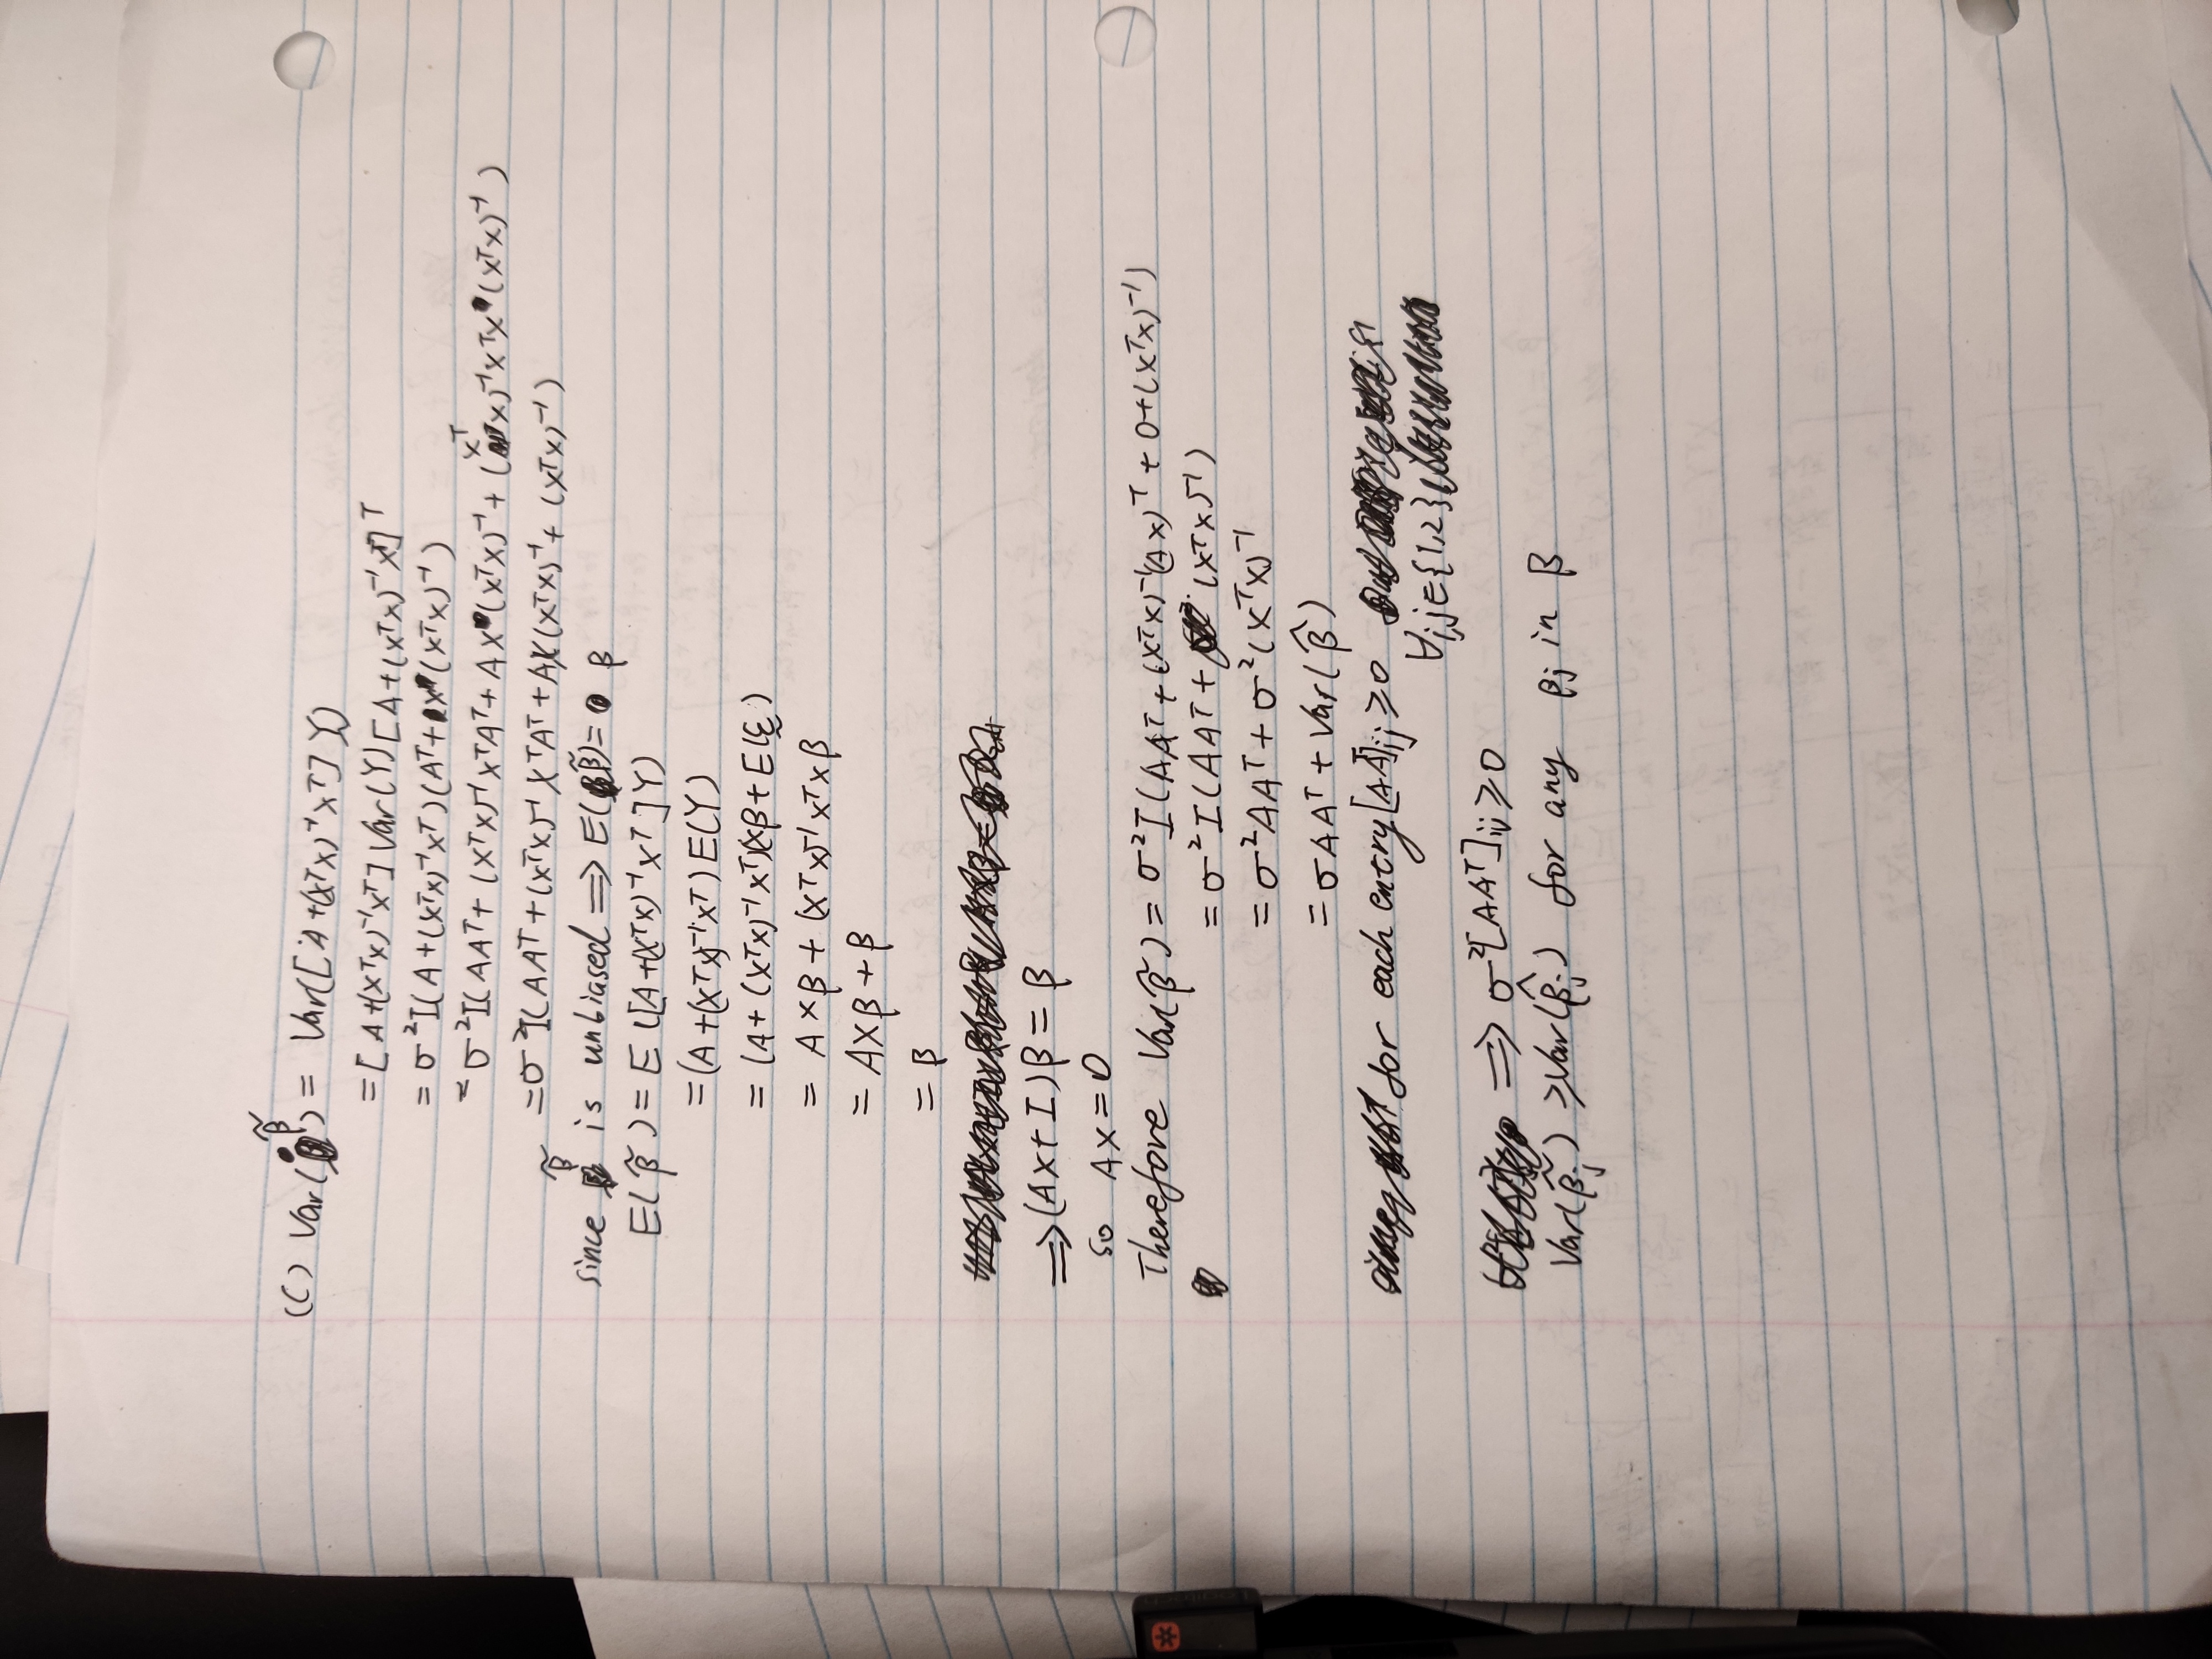 (C) Var(β̃) = Var([A+(XᵀX)⁻¹Xᵀ]Y)
=[A+(XᵀX)⁻¹Xᵀ]Var(Y)[A+(XᵀX)⁻¹Xᵀ]ᵀ
= σ²I(A+(XᵀX)⁻¹Xᵀ)(Aᵀ+X(XᵀX)⁻¹)
= σ²I(AAᵀ+(XᵀX)⁻¹XᵀAᵀ+AX(XᵀX)⁻¹+(XᵀX)⁻¹XᵀX(XᵀX)⁻¹)
=σ²I(AAᵀ+(XᵀX)⁻¹XᵀAᵀ+AX(XᵀX)⁻¹+(XᵀX)⁻¹)
since β̃ is unbiased ⟹ E(β̃)= β
E(β̃)= E([A+(XᵀX)⁻¹Xᵀ]Y)
=(A+(XᵀX)⁻¹Xᵀ)E(Y)
= (A+(XᵀX)⁻¹Xᵀ)(Xβ+E(ε)
= AXβ+(XᵀX)⁻¹XᵀXβ
= AXβ+β
= β
⟹(AX+I)β = β
so AX=0
Therefore Var(β̃)= σ²I(AAᵀ+(XᵀX)⁻¹(AX)ᵀ+0+(XᵀX)⁻¹)
= σ²I(AAᵀ+(XᵀX)⁻¹)
= σ²AAᵀ+σ²(XᵀX)⁻¹
= σAAᵀ+Var(β̂)
for each entry[AAᵀ]ij ≥0
∀i,j∈{1,2}
⟹ σ²[AAᵀ]ij ≥0
Var(β̃j) ≥Var(β̂j) for any βj in β